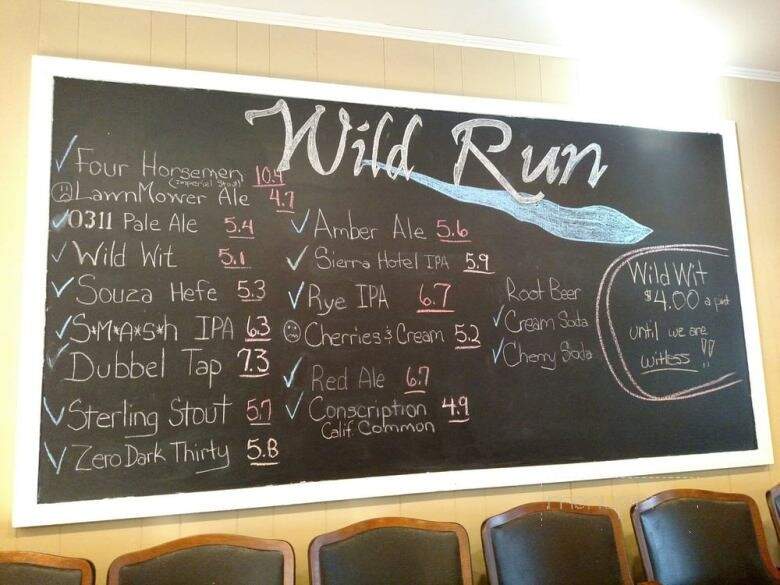 Wild Run
✓ Four Horsemen 10.4
(Imperial Stout)
☹ LawnMower Ale 4.7
✓ 0311 Pale Ale 5.4
✓ Wild Wit 5.1
✓ Souza Hefe 5.3
✓ S*M*A*S*h IPA 6.3
Dubbel Tap 7.3
✓ Sterling Stout 5.7
✓ Zero Dark Thirty 5.8
✓ Amber Ale 5.6
✓ Sierra Hotel IPA 5.9
✓ Rye IPA 6.7
☹ Cherries & Cream 5.2
✓ Red Ale 6.7
✓ Conscription 4.9
Calif. Common
Root Beer
✓ Cream Soda
✓ Cherry Soda
Wild Wit
$4.00 a pint
until we are
witless!!